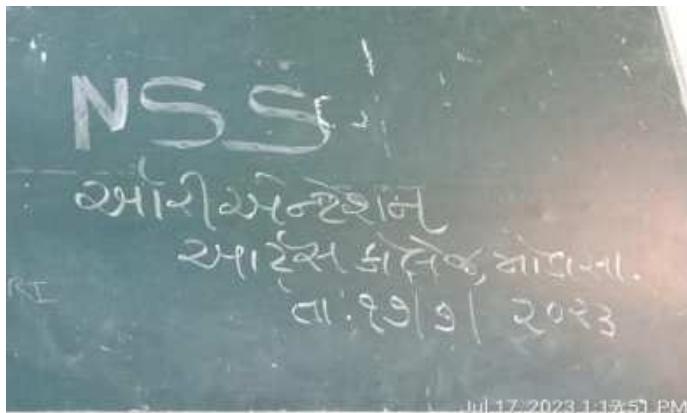 NSS
ઓરીએન્ટેશન
આર્ટસ કોલેજ, મોડાસા.
RI
તા: ૧૭/૭/ ૨૦૨૩
Jul 17, 2023 1:17:51 PM